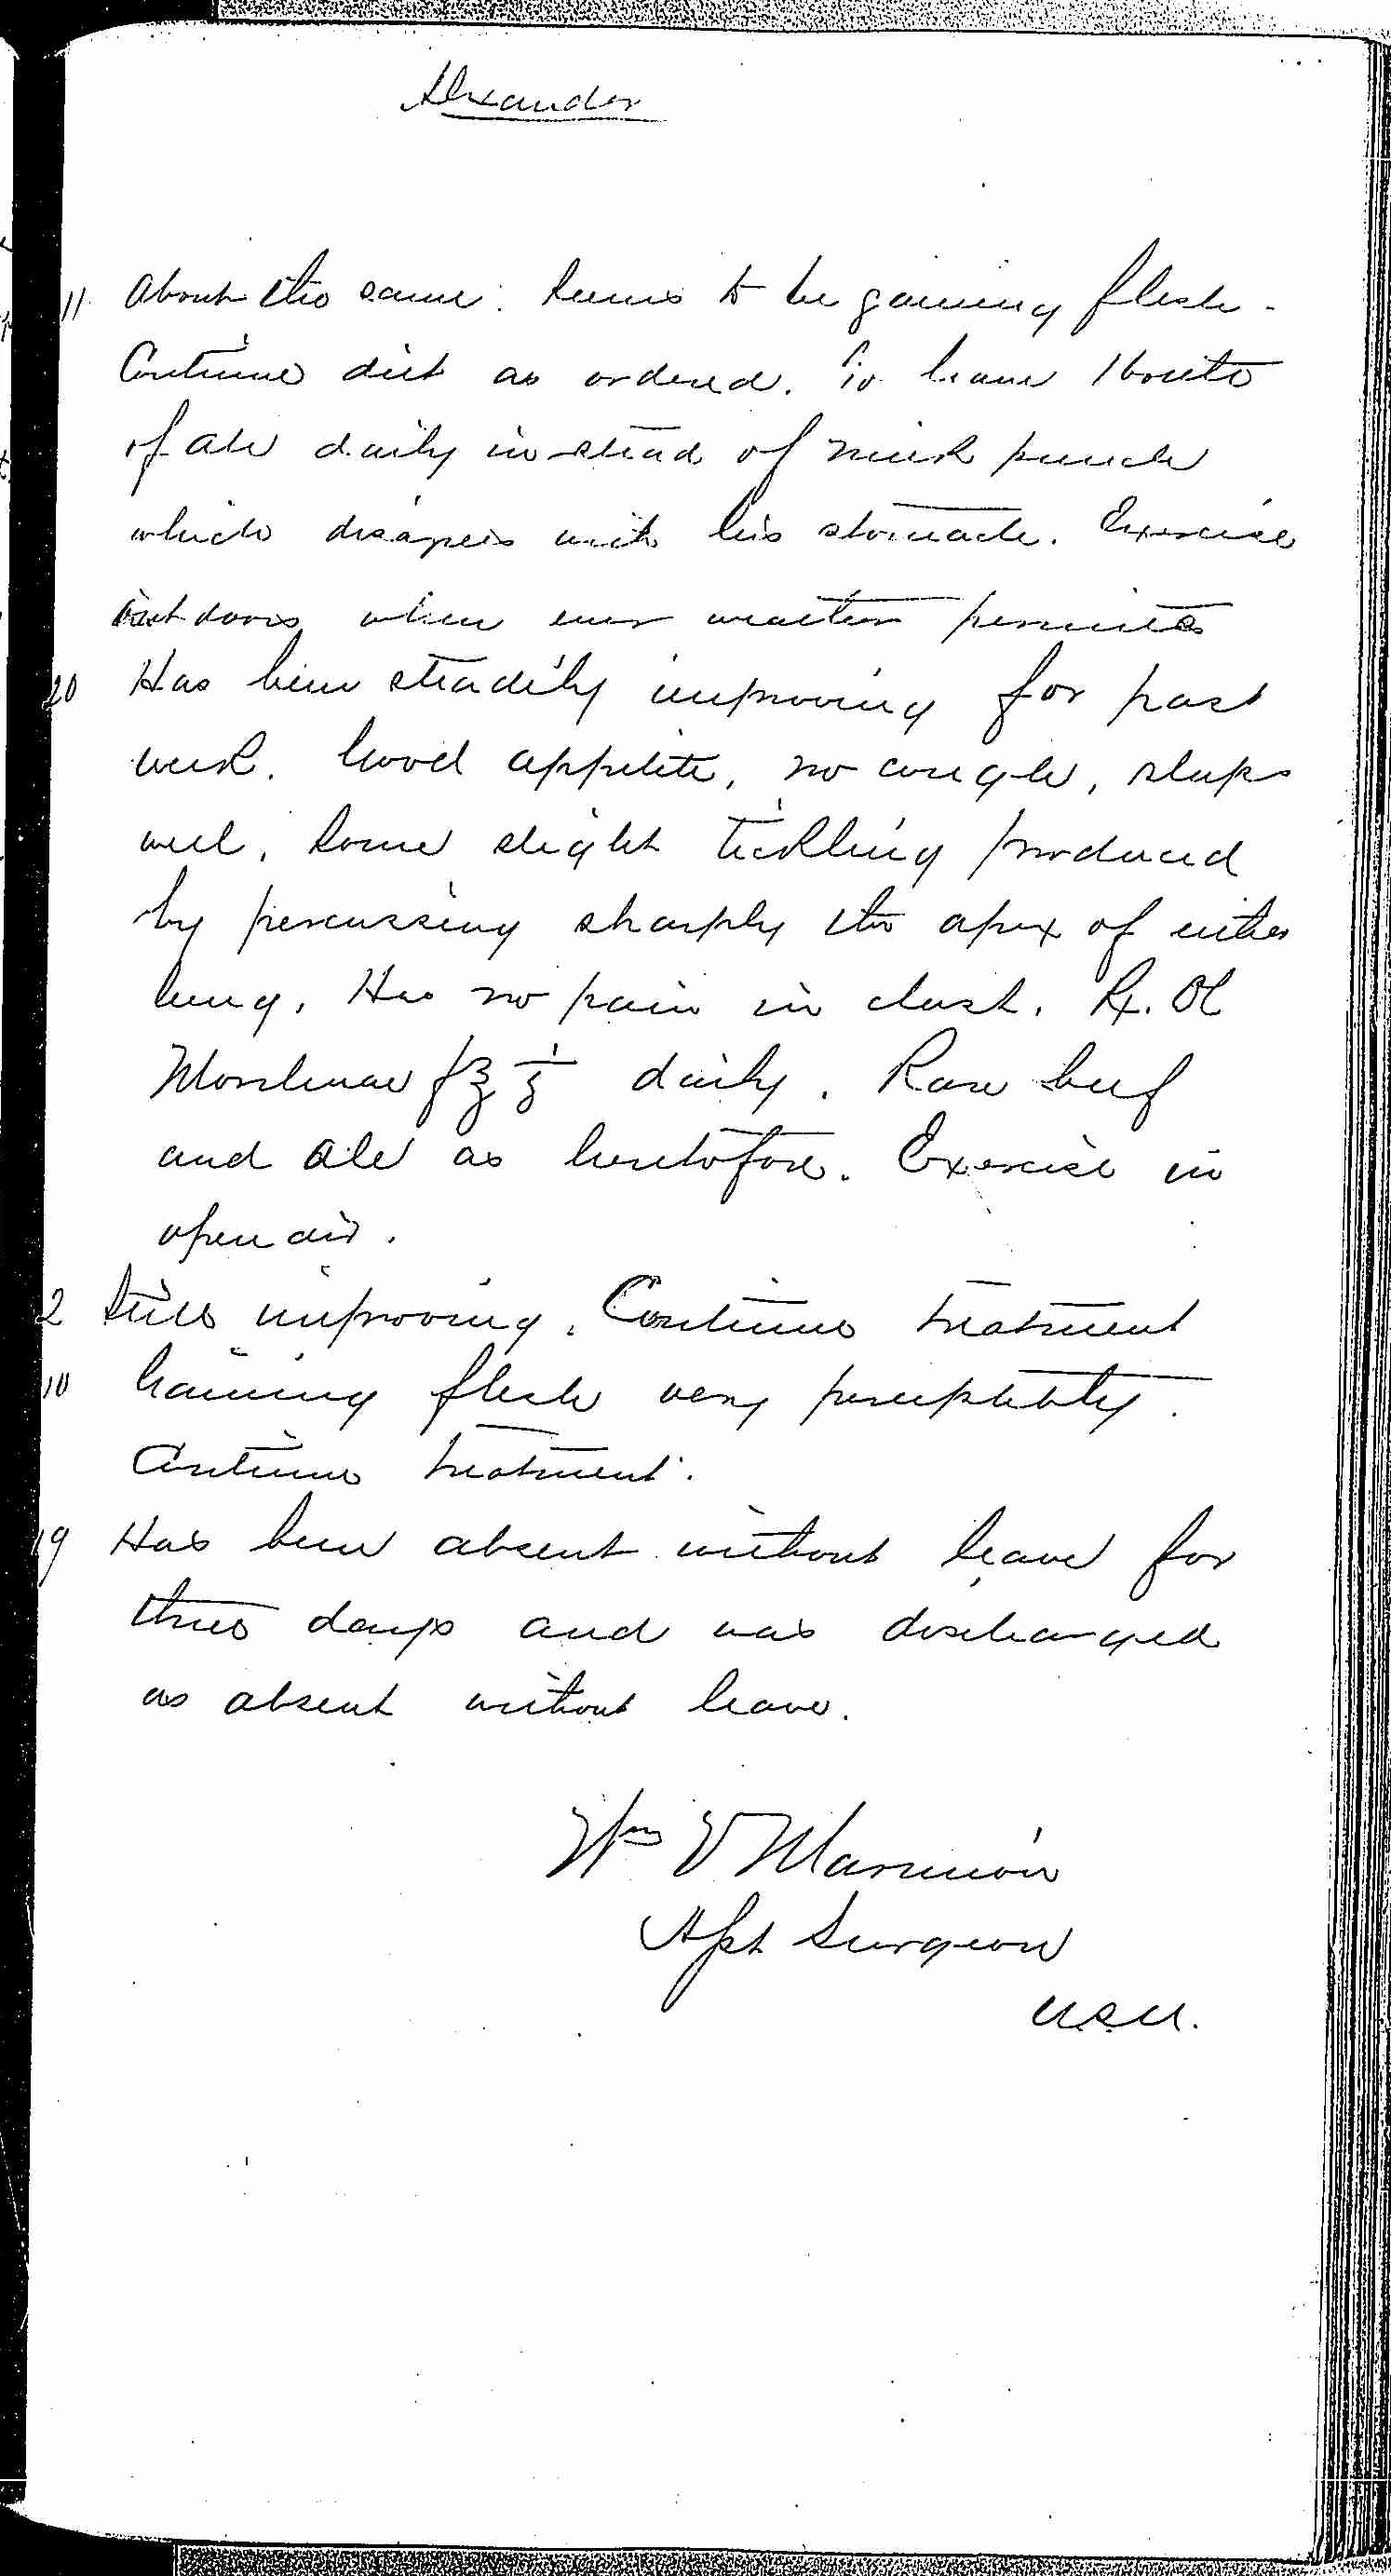 Alexander
11 About the same. Seems to be gaining flesh.
Continue diet as ordered. To have 1 bottle
of ale daily instead of milk punch
which disagrees with his stomach. Exercise
out doors when ever weather permits
20 Has been steadily improving for past
week. Good appetite, no cough, sleeps
well, Some slight tickling produced
by percussing sharply the apex of either
lung. Has no pain in chest. Rx. Ol
Morrhuae f℥ ½ daily. Raw beef
and ale as heretofore. Exercise in
open air.
2 Still improving. Continue treatment
10 Gaining flesh very perceptibly.
Continue treatment.
19 Has been absent without leave for
three days and was discharged
as absent without leave.
Wm V Marmion
Asst Surgeon
U.S.N.